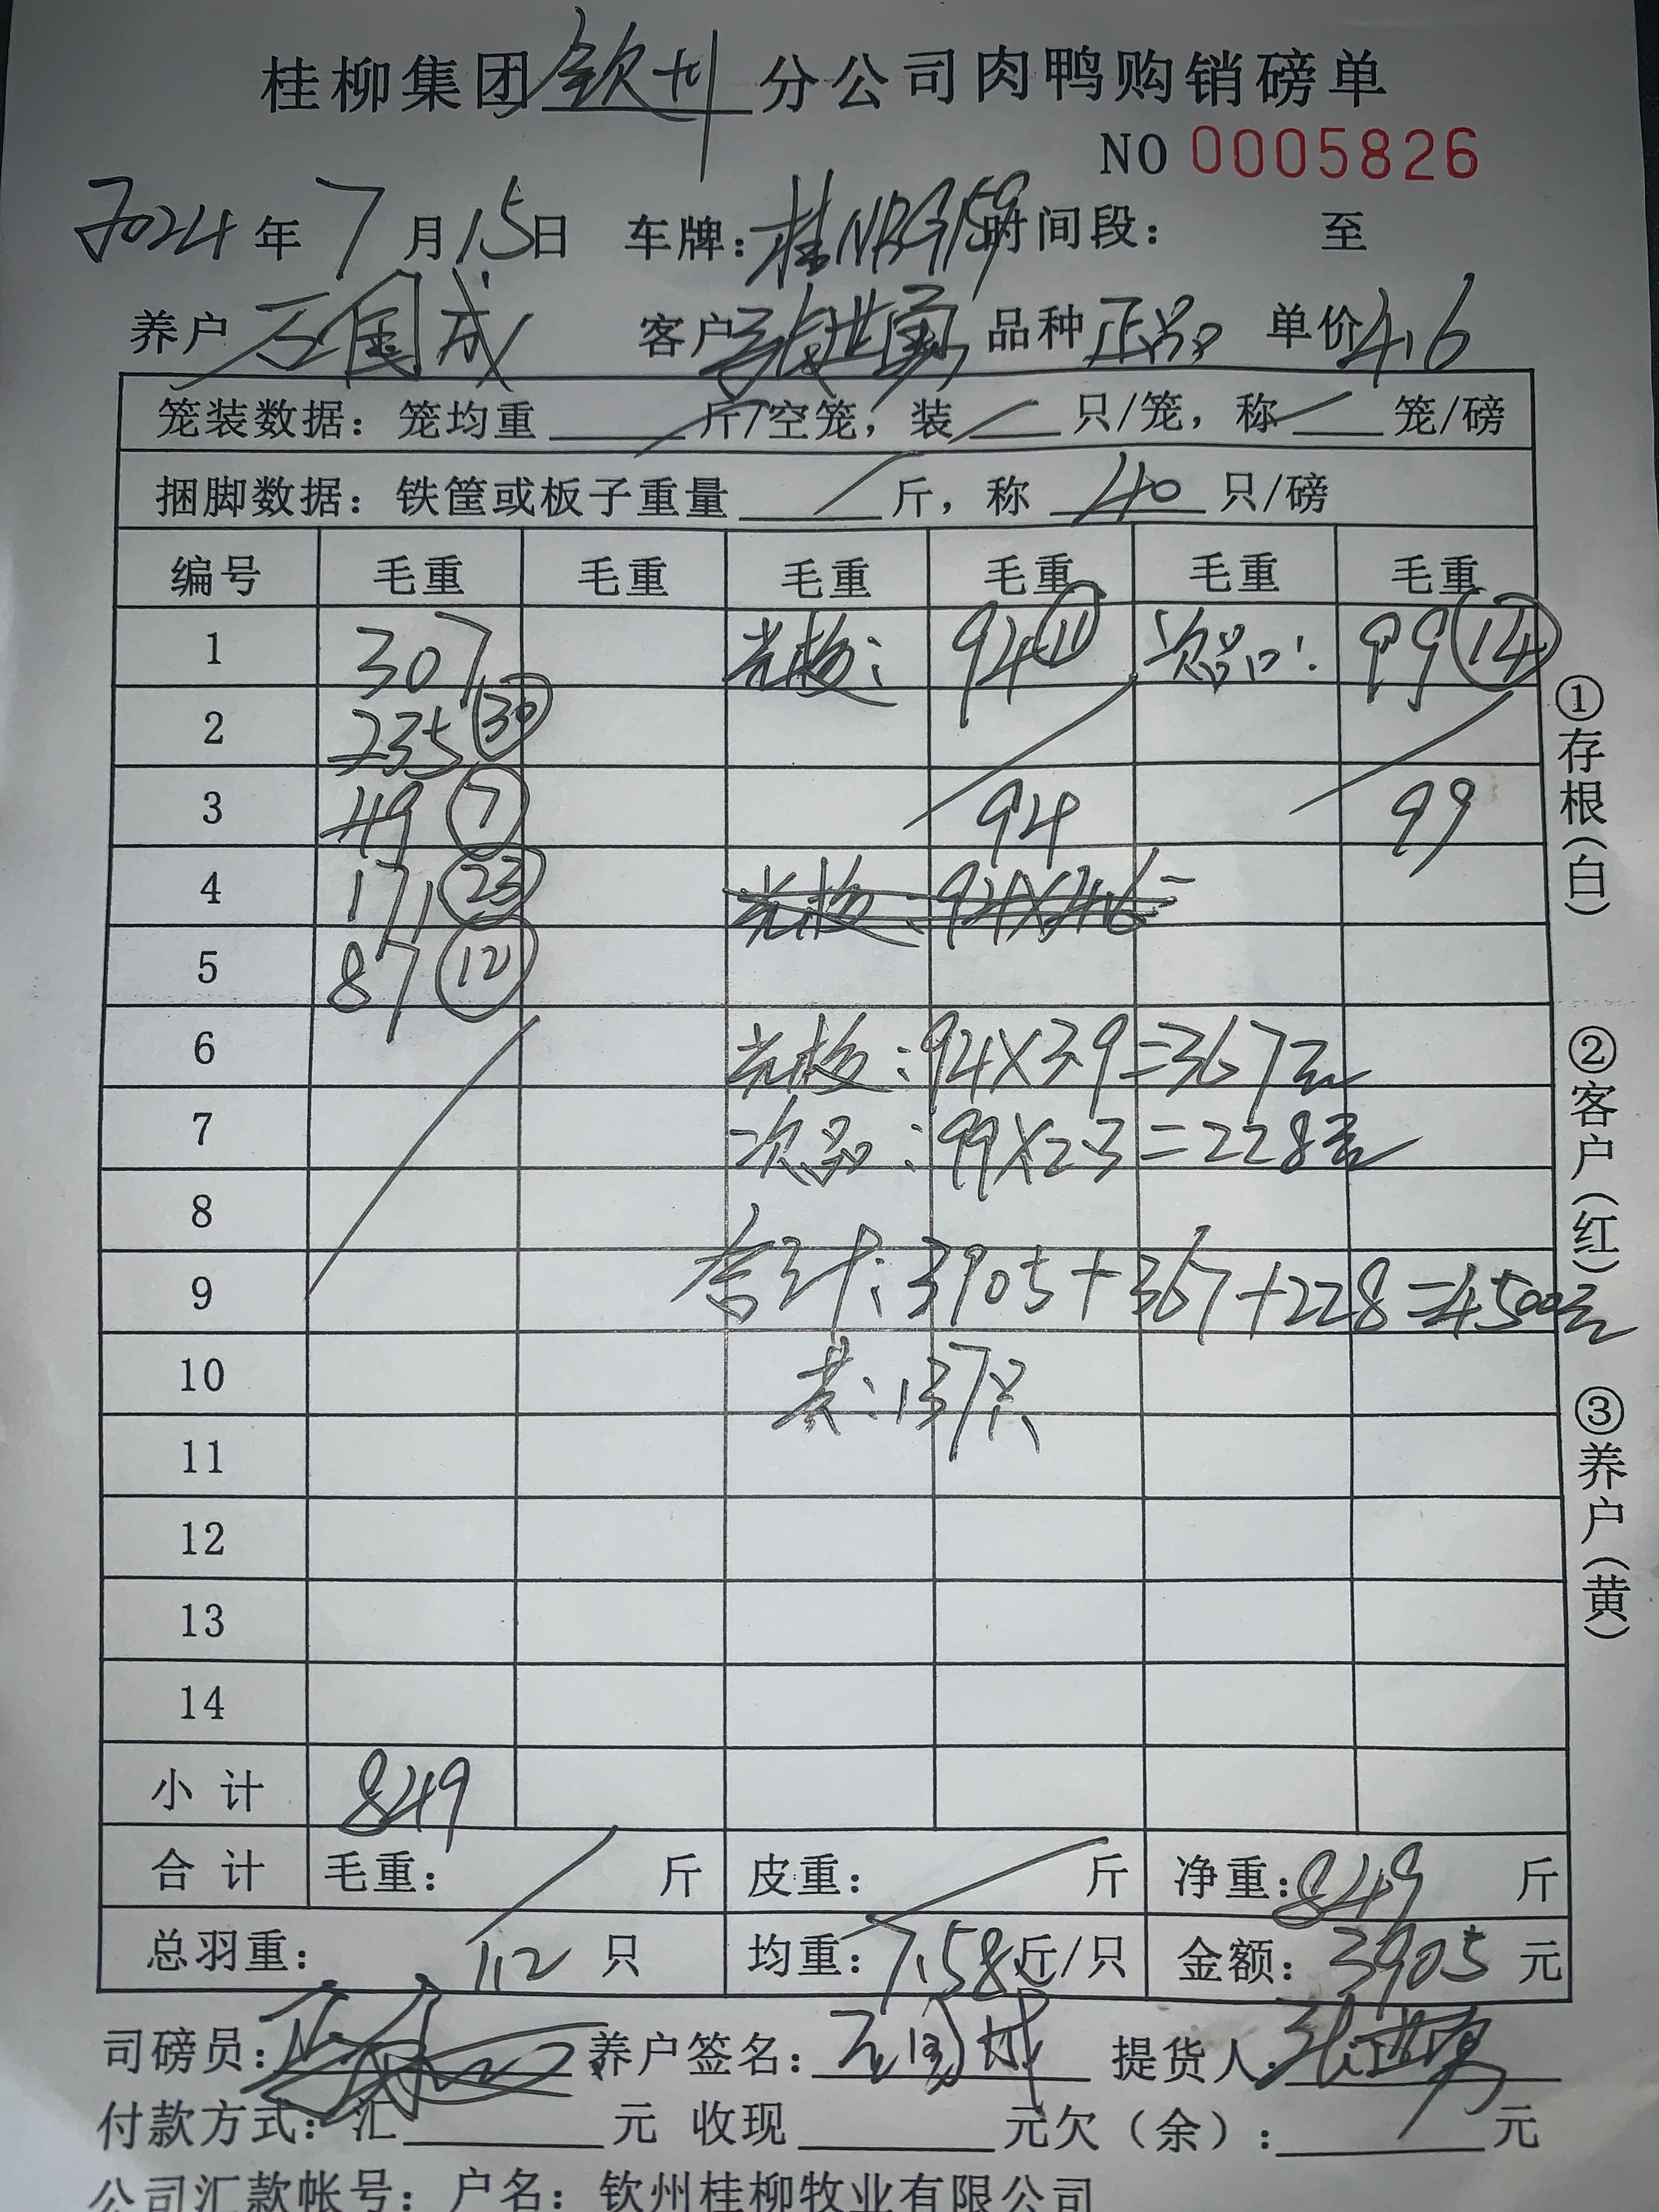 桂柳集团钦州分公司肉鸭购销磅单
NO 0005826
2024年7月15日 车牌:桂NBG159时间段: 至
养户 石国成 客户 张世勇 品种 正品 单价 4.6
笼装数据: 笼均重 斤/空笼, 装 只/笼, 称 笼/磅
捆脚数据: 铁筐或板子重量 斤, 称 40 只/磅
编号 毛重 毛重 毛重 毛重 毛重 毛重
1 307 94 11 次品: 99 14
2 235 30
3 49 7 94 99
4 171 23 94×4.6=
5 87 12
6 94×3.9=367元
7 次品:99×2.3=228元
8
9 合计:3905+367+228=4500元
10 共:137只
11
12
13
14
小计 849
合计 毛重: 斤 皮重: 斤 净重:849 斤
总羽重: 112 只 均重:7.58斤/只 金额:3905元
司磅员: 养户签名:石国成 提货人:张世勇
付款方式: 汇 元 收现 元欠(余): 元
公司汇款帐号: 户名: 钦州桂柳牧业有限公司
①存根(白)
②客户(红)
③养户(黄)